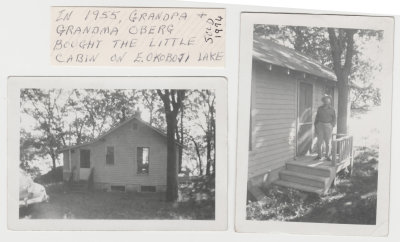 IN 1955, GRANDPA +
GRANDMA OBERG
BOUGHT THE LITTLE
CABIN ON E. OKOBOJI LAKE
SOLD
1974